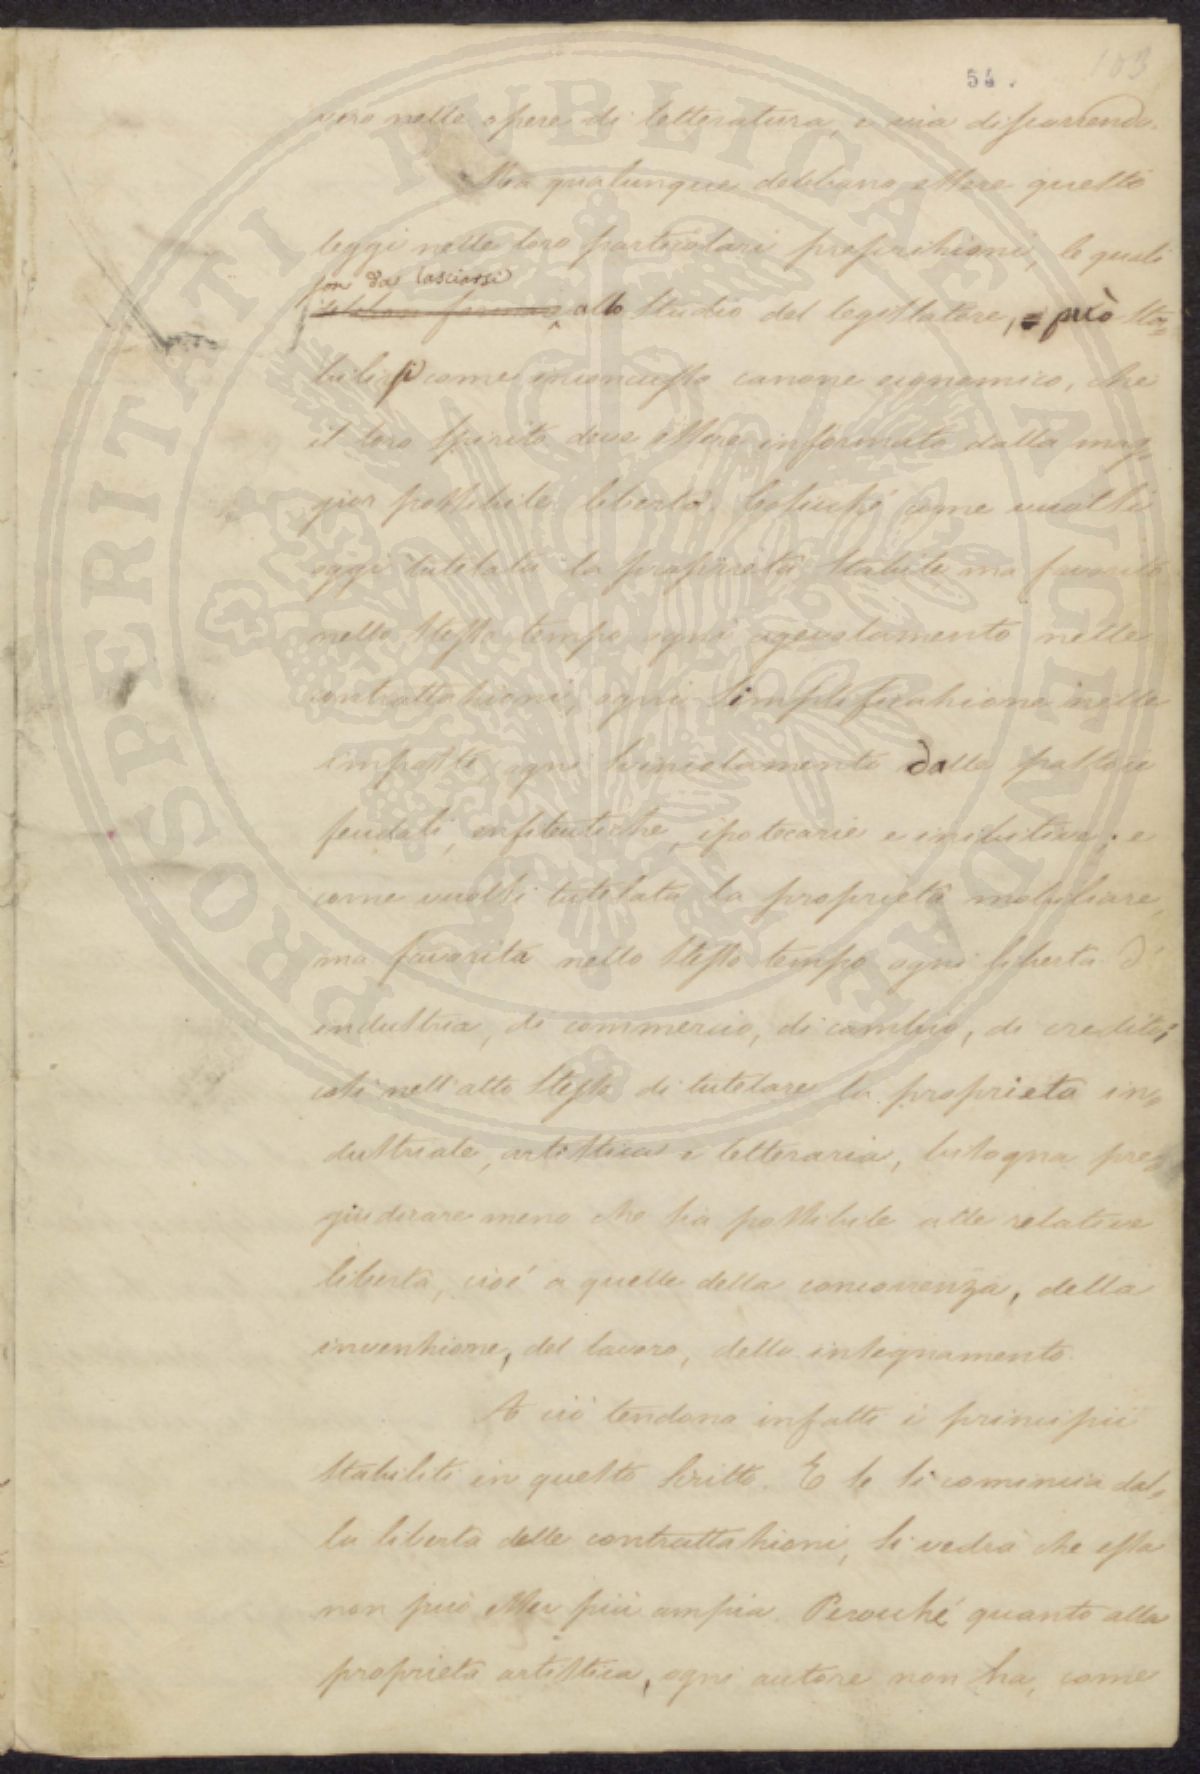 103
54.
vero nelle opere di letteratura, e via discorrendo.
Ma qualunque debbano essere queste
leggi nelle loro particolari prescrizioni, le quali
son da lasciarsi
allo studio del legislatore, può sta=
bilirsi come inconcusso canone economico, che
il loro spirito deve essere informato dalla mag=
gior possibile libertà. Cosicché come vuolsi
oggi tutelata la proprietà stabile ma favorito
nello stesso tempo ogni agevolamento nelle
contrattazioni, ogni simplificazione nelle
imposte, ogni svincolamento dalle pastoie
feudali, enfiteutiche, ipotecarie e inibitive; e
come vuolsi tutelata la proprietà mobiliare,
ma favorita nello stesso tempo ogni libertà d'
industria, di commercio, di cambio, di credito;
così nell'atto stesso di tutelare la proprietà in=
dustriale, artistica e letteraria, bisogna pre=
giudicare meno che sia possibile alle relative
libertà, cioè a quelle della concorrenza, della
invenzione, del lavoro, dello insegnamento.
A ciò tendono infatti i principii
stabiliti in questo scritto. E se si comincia dal=
la libertà delle contrattazioni, si vedrà che essa
non può esser più ampia. Perocché quanto alla
proprietà artistica, ogni autore non ha, come
PROSPERITATI PUBLICAE AUGENDAE